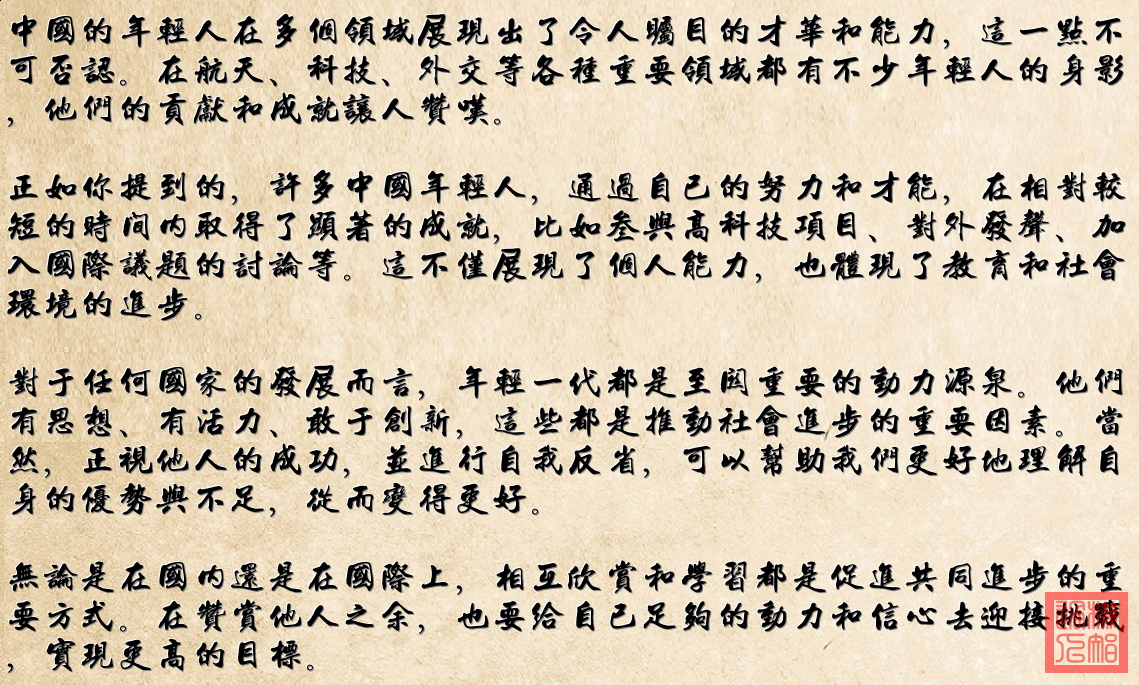 中國的年輕人在多個領域展現出了令人矚目的才華和能力，這一點不
可否認。在航天、科技、外交等各種重要領域都有不少年輕人的身影
，他們的貢獻和成就讓人贊嘆。
正如你提到的，許多中國年輕人，通過自己的努力和才能，在相對較
短的時間内取得了顯著的成就，比如叁與高科技項目、對外發聲、加
入國際議題的討論等。這不僅展現了個人能力，也體現了教育和社會
環境的進步。
對于任何國家的發展而言，年輕一代都是至関重要的動力源泉。他們
有思想、有活力、敢于創新，這些都是推動社會進步的重要因素。當
然，正視他人的成功，並進行自我反省，可以幫助我們更好地理解自
身的優勢與不足，從而變得更好。
無論是在國内還是在國際上，相互欣賞和學習都是促進共同進步的重
要方式。在贊賞他人之余，也要給自己足夠的動力和信心去迎接挑戰
，實現更高的目標。